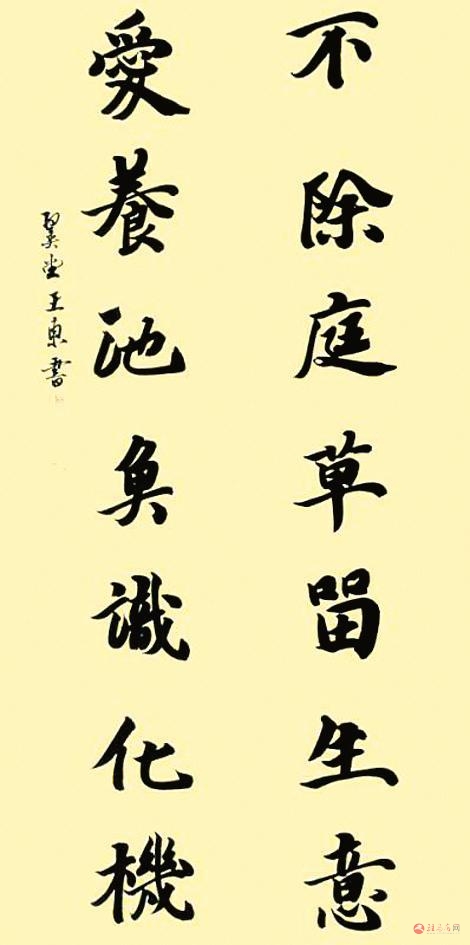 不除庭草留生意
愛養池魚識化機
王東書